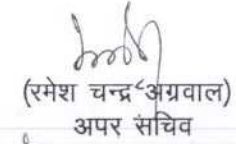 (रमेश चन्द्र अग्रवाल)
अपर सचिव